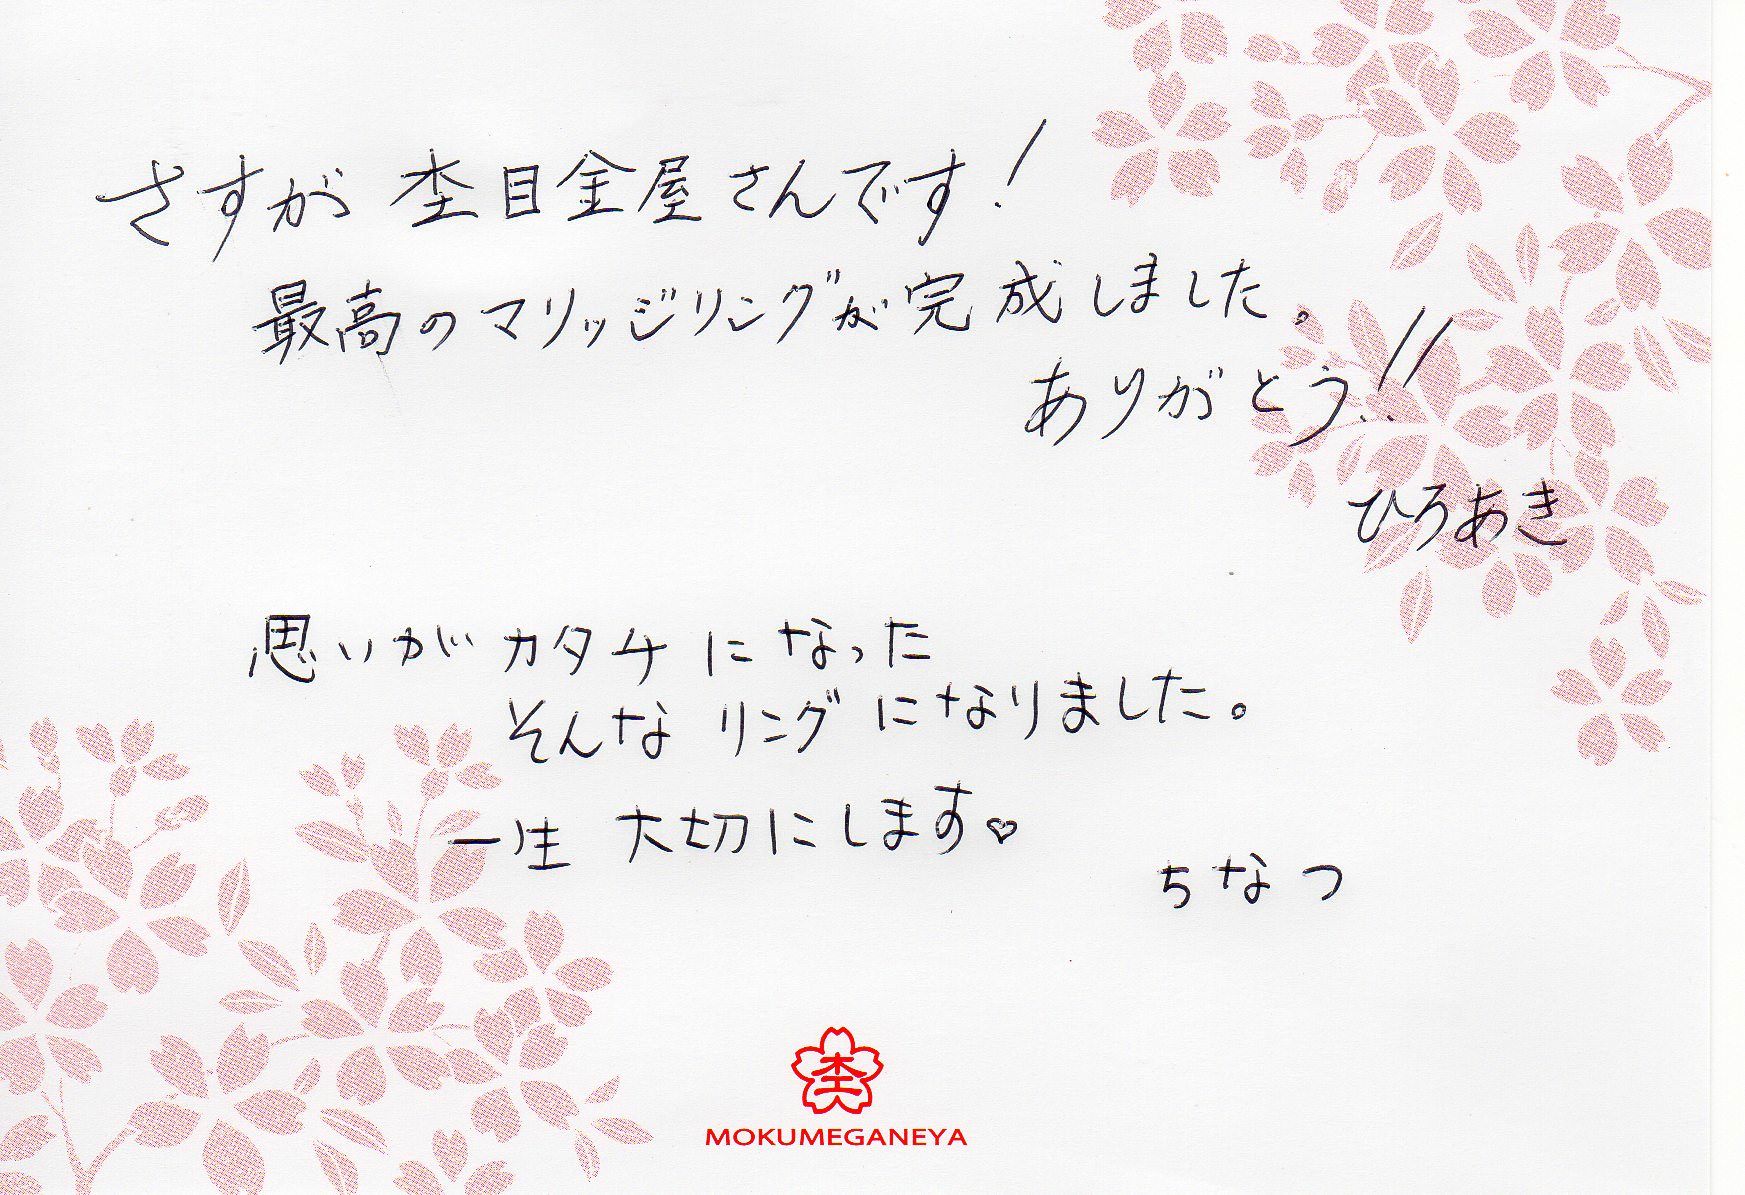 さすが 杢目金屋さんです!
最高のマリッジリングが完成しました。
ありがとう!!
ひろあき
思いがカタチになった
そんなリングになりました。
一生 大切にします♡
ちなつ
杢
MOKUMEGANEYA